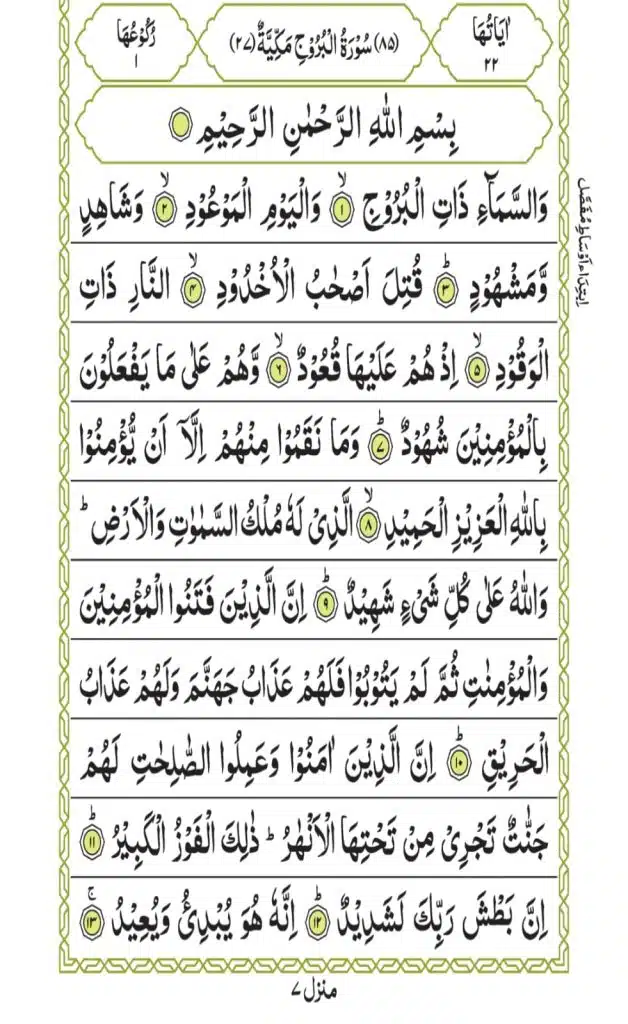 اٰيَاتُهَا ٢٢ (٨٥) سُوْرَةُ الْبُرُوْجِ مَكِّيَّةٌ (٢٧) رُكُوْعُهَا ١
بِسْمِ اللّٰهِ الرَّحْمٰنِ الرَّحِيْمِ
وَالسَّمَآءِ ذَاتِ الْبُرُوْجِ ۙ١ وَالْيَوْمِ الْمَوْعُوْدِ ۙ٢ وَشَاهِدٍ
وَّمَشْهُوْدٍ ؕ٣ قُتِلَ اَصْحٰبُ الْاُخْدُوْدِ ۙ٤ النَّارِ ذَاتِ
الْوَقُوْدِ ۙ٥ اِذْ هُمْ عَلَيْهَا قُعُوْدٌ ۙ٦ وَّهُمْ عَلٰى مَا يَفْعَلُوْنَ
بِالْمُؤْمِنِيْنَ شُهُوْدٌ ؕ٧ وَمَا نَقَمُوْا مِنْهُمْ اِلَّاۤ اَنْ يُّؤْمِنُوْا
بِاللّٰهِ الْعَزِيْزِ الْحَمِيْدِ ۙ٨ الَّذِيْ لَهٗ مُلْكُ السَّمٰوٰتِ وَالْاَرْضِ ؕ
وَاللّٰهُ عَلٰى كُلِّ شَيْءٍ شَهِيْدٌ ؕ٩ اِنَّ الَّذِيْنَ فَتَنُوا الْمُؤْمِنِيْنَ
وَالْمُؤْمِنٰتِ ثُمَّ لَمْ يَتُوْبُوْا فَلَهُمْ عَذَابُ جَهَنَّمَ وَلَهُمْ عَذَابُ
الْحَرِيْقِ ؕ١٠ اِنَّ الَّذِيْنَ اٰمَنُوْا وَعَمِلُوا الصّٰلِحٰتِ لَهُمْ
جَنّٰتٌ تَجْرِيْ مِنْ تَحْتِهَا الْاَنْهٰرُ ؕ ذٰلِكَ الْفَوْزُ الْكَبِيْرُ ؕ١١
اِنَّ بَطْشَ رَبِّكَ لَشَدِيْدٌ ؕ١٢ اِنَّهٗ هُوَ يُبْدِئُ وَيُعِيْدُ ۚ١٣
ابتداء اوساط مفصّل
منزل ٧